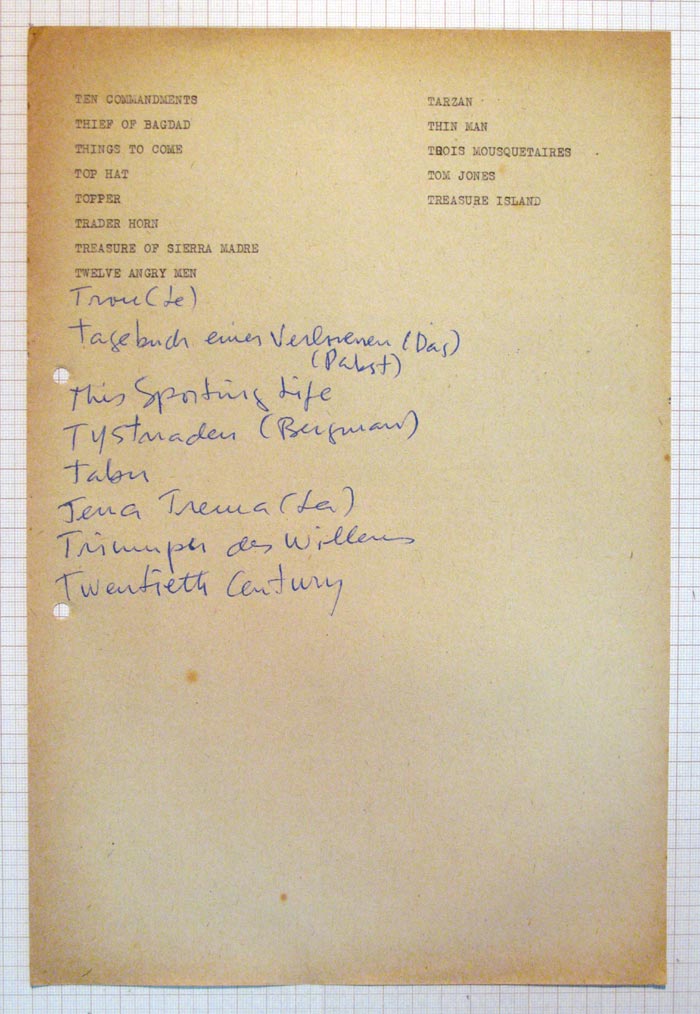 TEN COMMANDMENTS
THIEF OF BAGDAD
THINGS TO COME
TOP HAT
TOPPER
TRADER HORN
TREASURE OF SIERRA MADRE
TWELVE ANGRY MEN
TARZAN
THIN MAN
TROIS MOUSQUETAIRES
TOM JONES
TREASURE ISLAND
Trou (Le)
Tagebuch einer Verlorenen (Das)
(Pabst)
This Sporting Life
Tystnaden (Bergman)
Tabu
Terra Trema (La)
Triumph des Willens
Twentieth Century